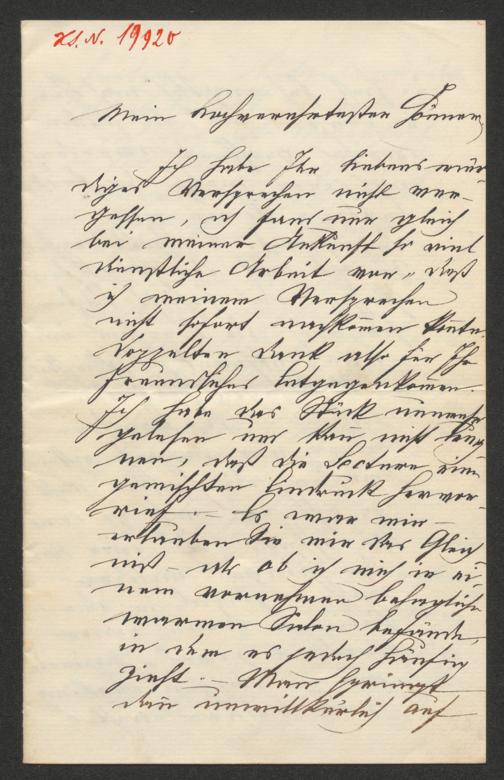 H.I.N. 19920
Mein hochverehrtester Gönner,
Ich habe Ihr liebenswür-
diges Versprechen nicht ver-
gessen, ich fand nur gleich
bei meiner Ankunft so viel
dienstliche Arbeit vor, daß
ich meinem Versprechen
nicht sofort nachkommen konnte.
Doppelten Dank also für Ihr
freundliches Entgegenkommen.
Ich habe das Stück nunmehr
gelesen und kann nicht leug-
nen, daß die Lecture einen
gemischten Eindruck hervor-
rief. – Es war mir –
erlauben Sie mir das Gleich-
niß – als ob ich mich in ei-
nem vornehmen behaglich
warmen Salon befände,
in dem es jedoch häufig
zieht. – Man springt
dann unwillkürlich auf